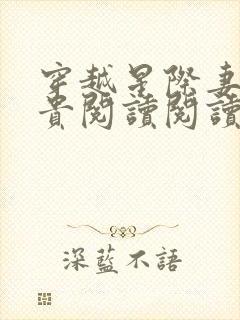 穿越星際妻
貴閱讀閱讀
深藍不語